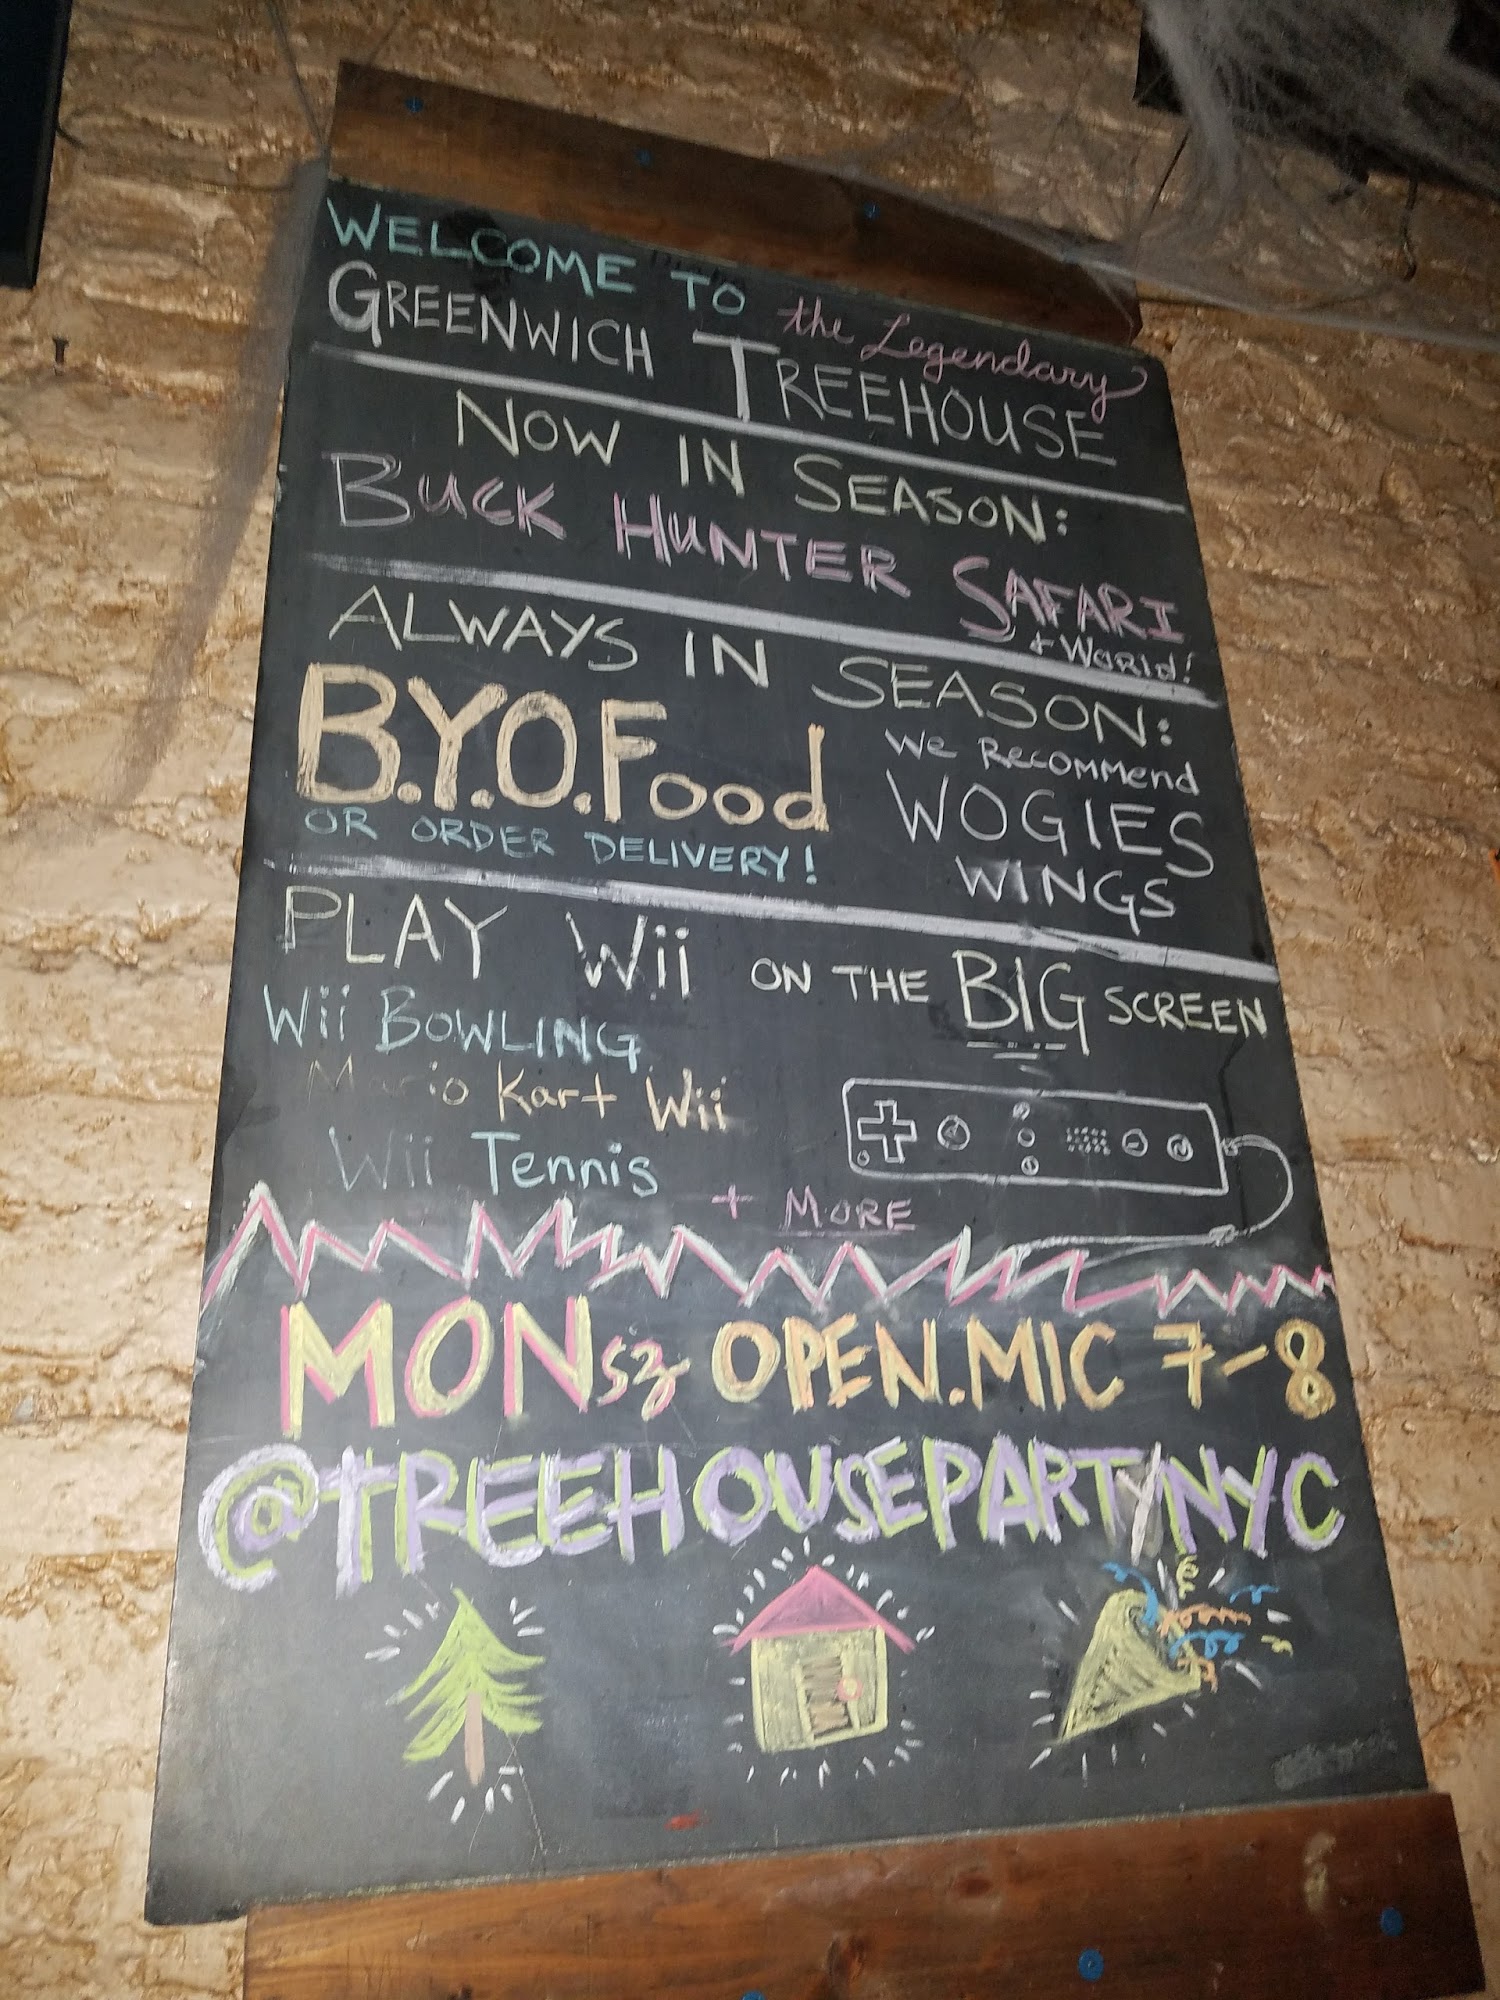 WELCOME TO the Legendary
GREENWICH TREEHOUSE
NOW IN SEASON:
BUCK HUNTER SAFARI
+ WORLD!
ALWAYS IN SEASON:
B.Y.O.Food
OR ORDER DELIVERY!
We Recommend
WOGIES
WINGS
PLAY Wii ON THE BIG SCREEN
Wii BOWLING
Mario Kart Wii
Wii Tennis
+ MORE
MON OPEN.MIC 7-8
@TREEHOUSEPARTYNYC